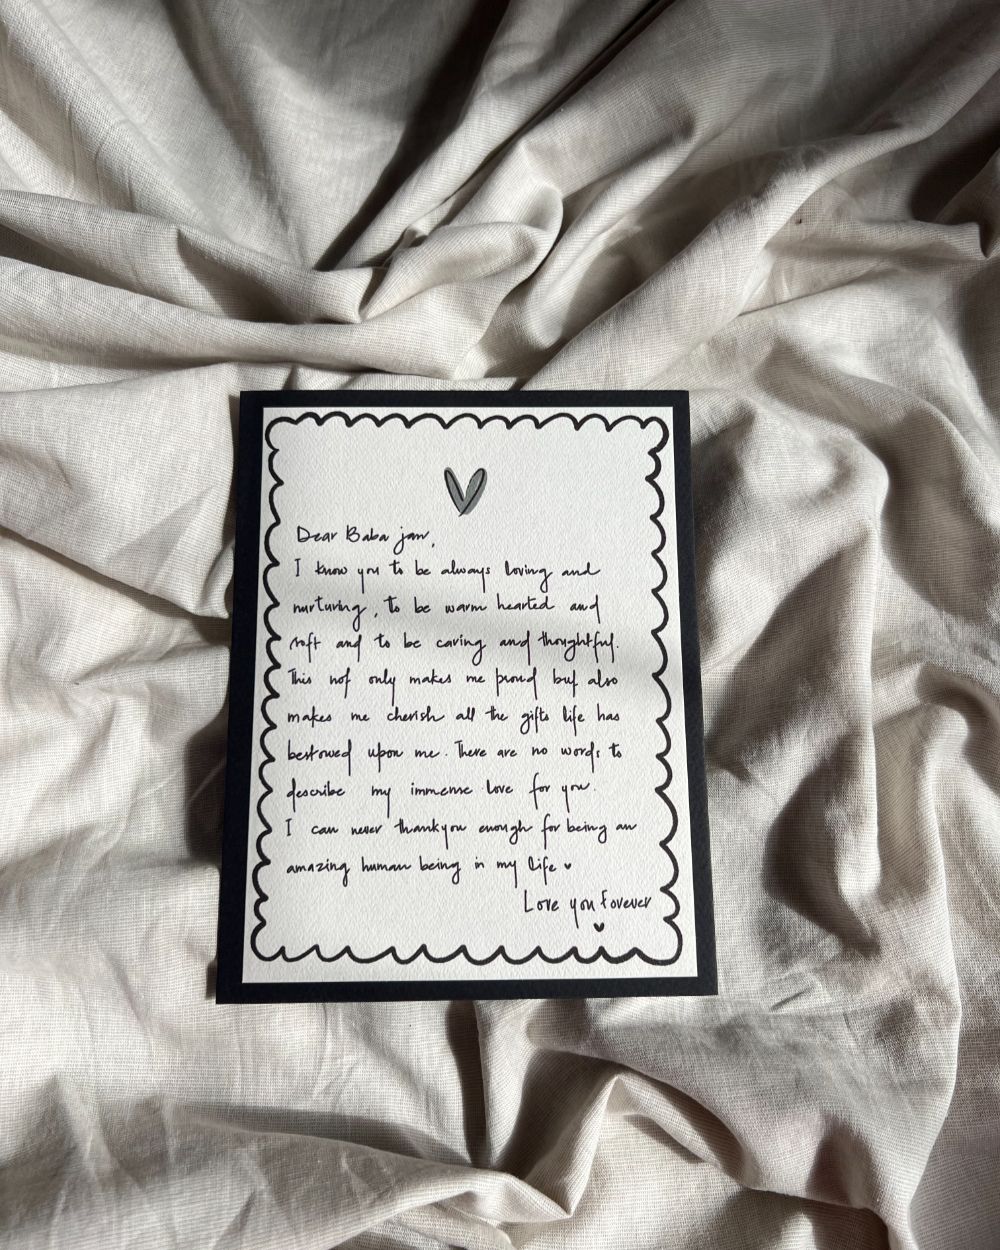 Dear Baba jan,
I know you to be always loving and
nurturing, to be warm hearted and
soft and to be caring and thoughtful.
This not only makes me proud but also
makes me cherish all the gifts life has
bestowed upon me. There are no words to
describe my immense love for you.
I can never thankyou enough for being an
amazing human being in my life ♥
Love you Forever
♥